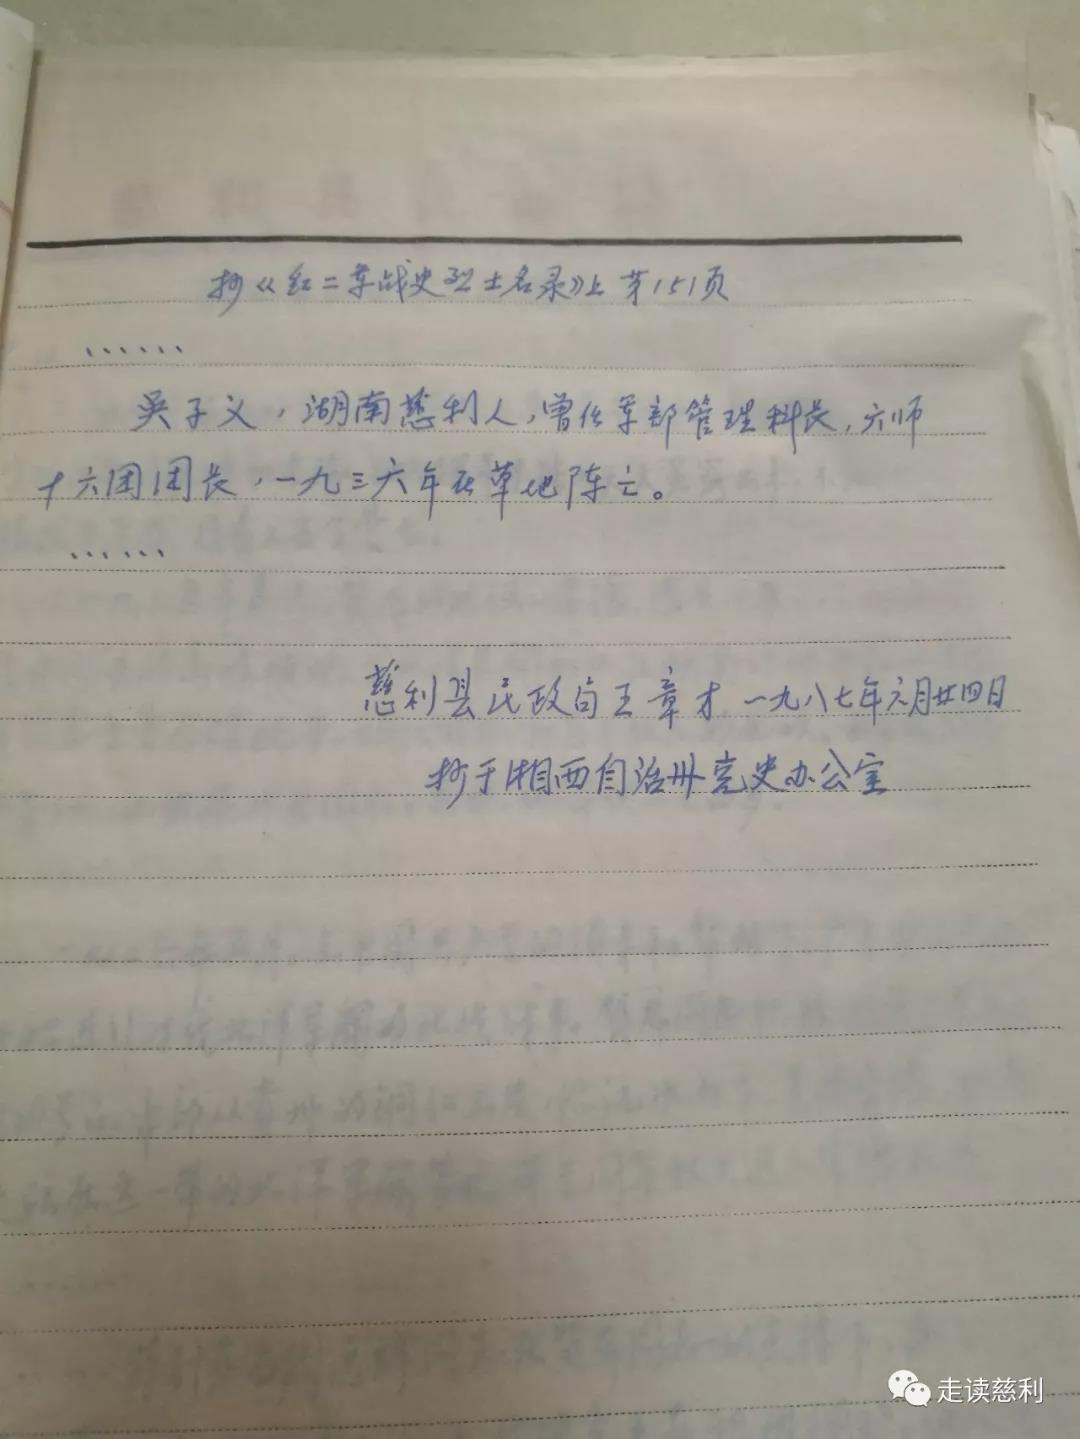 抄《红二军战史烈士名录》上第151页
......
吴子义，湖南慈利人，曾任军部管理科长，六师
十六团团长，一九三六年在草地阵亡。
......
慈利县民政局王章才 一九八七年六月廿四日
抄于湘西自治州党史办公室
走读慈利